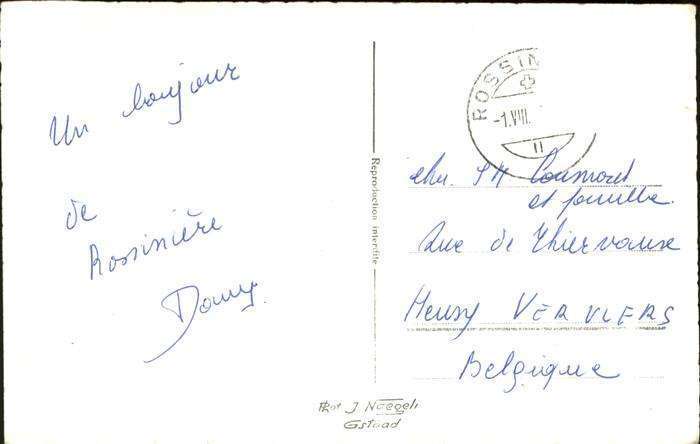 Un bonjour
de
Rossinière
ROSSIN
-1.VIII.
11
et famille
Rue de Thiervaux
Heusy VERVIERS
Belgique
Reproduction interdite
Phot J Naegeli
Gstaad